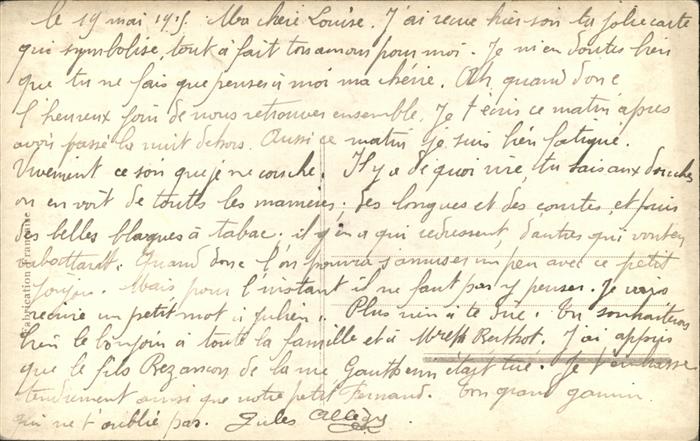 le 19 mai 1915. Ma chère Louise. J'ai reçue hier soir ta jolie carte
qui symbolise tout à fait ton amour pour moi. Je m'en doutes bien
que tu ne fais que penser à moi ma chérie. Ah quand donc
l'heureux jour de nous retrouver ensemble. Je t'écris ce matin après
avoir passé la nuit dehors. Aussi ce matin je suis bien fatigué.
Vivement ce soir que je me couche. Il y a de quoi rire, tu sais aux douches
on en voit de toutes les manières. des longues et des courtes, et puis
des belles blagues à tabac. il y en a qui redressent, d'autres qui vont en
Quand donc l'on pourra s'amuser un peu avec ce petit
joujou. Mais pour l'instant il ne faut pas y penser. Je vais
écrire un petit mot à Julien. Plus rien à te dire. Tu souhaiteras
bien le bonjour à toute la famille et à Berthot. J'ai appris
que le fils Rezançon de la rue était tué. Je t'embrasse
tendrement ainsi que notre petit Fernand. Ton grand gamin
qui ne t'oublie pas. Jules
Fabrication Française